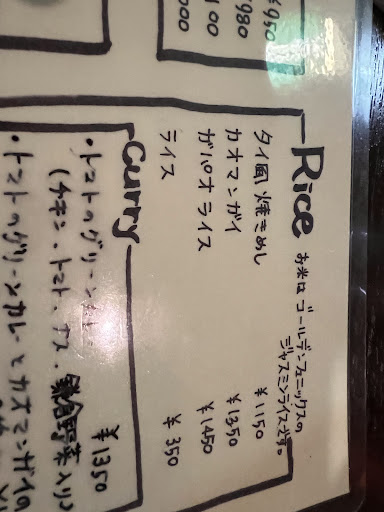 ¥950
¥980
100
000
Rice お米は ゴールデンフェニックスの
ジャスミンライスです。
タイ風 焼きめし ¥1150
カオマンガイ ¥1350
ガパオライス ¥1450
ライス ¥350
Curry
・トマトのグリーンカレー
(チキン・トマト、ナス、鎌倉野菜入り) ¥1350
・トマトのグリーンカレーとカオマンガイの